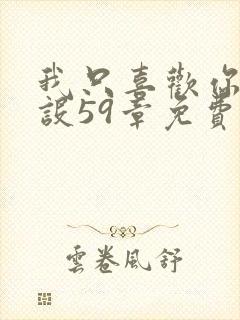 我只喜歡你
設59章免費
雲卷風舒